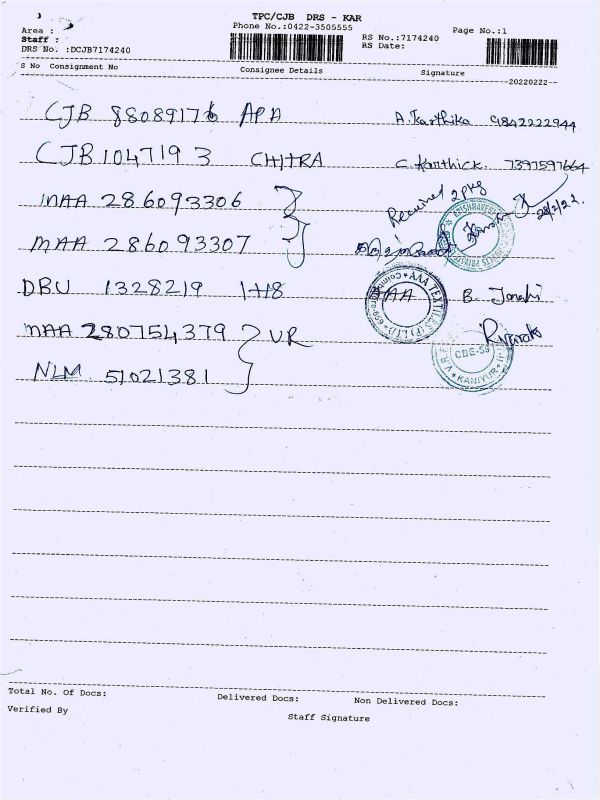 TPC/CJB DRS - KAR
Area :
Phone No.:0422-3505555
Page No.:1
Staff :
RS No.:7174240
DRS No. :DCJB7174240
RS Date:
S No Consignment No Consignee Details Signature
20220222
CJB 88089176 APA A. Karthika 9842222944
CJB 1047193 CHITRA C. Karthick. 7397597664
MAA 286093306 Received 2 pkg
MAA 286093307
DBU 1328219 1+18 B. Janaki
AAA TEXTILES (P) LTD
MAA 280754379 VR
CBE-59
KANIYUR
NLM 51021381
Total No. Of Docs: Delivered Docs: Non Delivered Docs:
Verified By Staff Signature